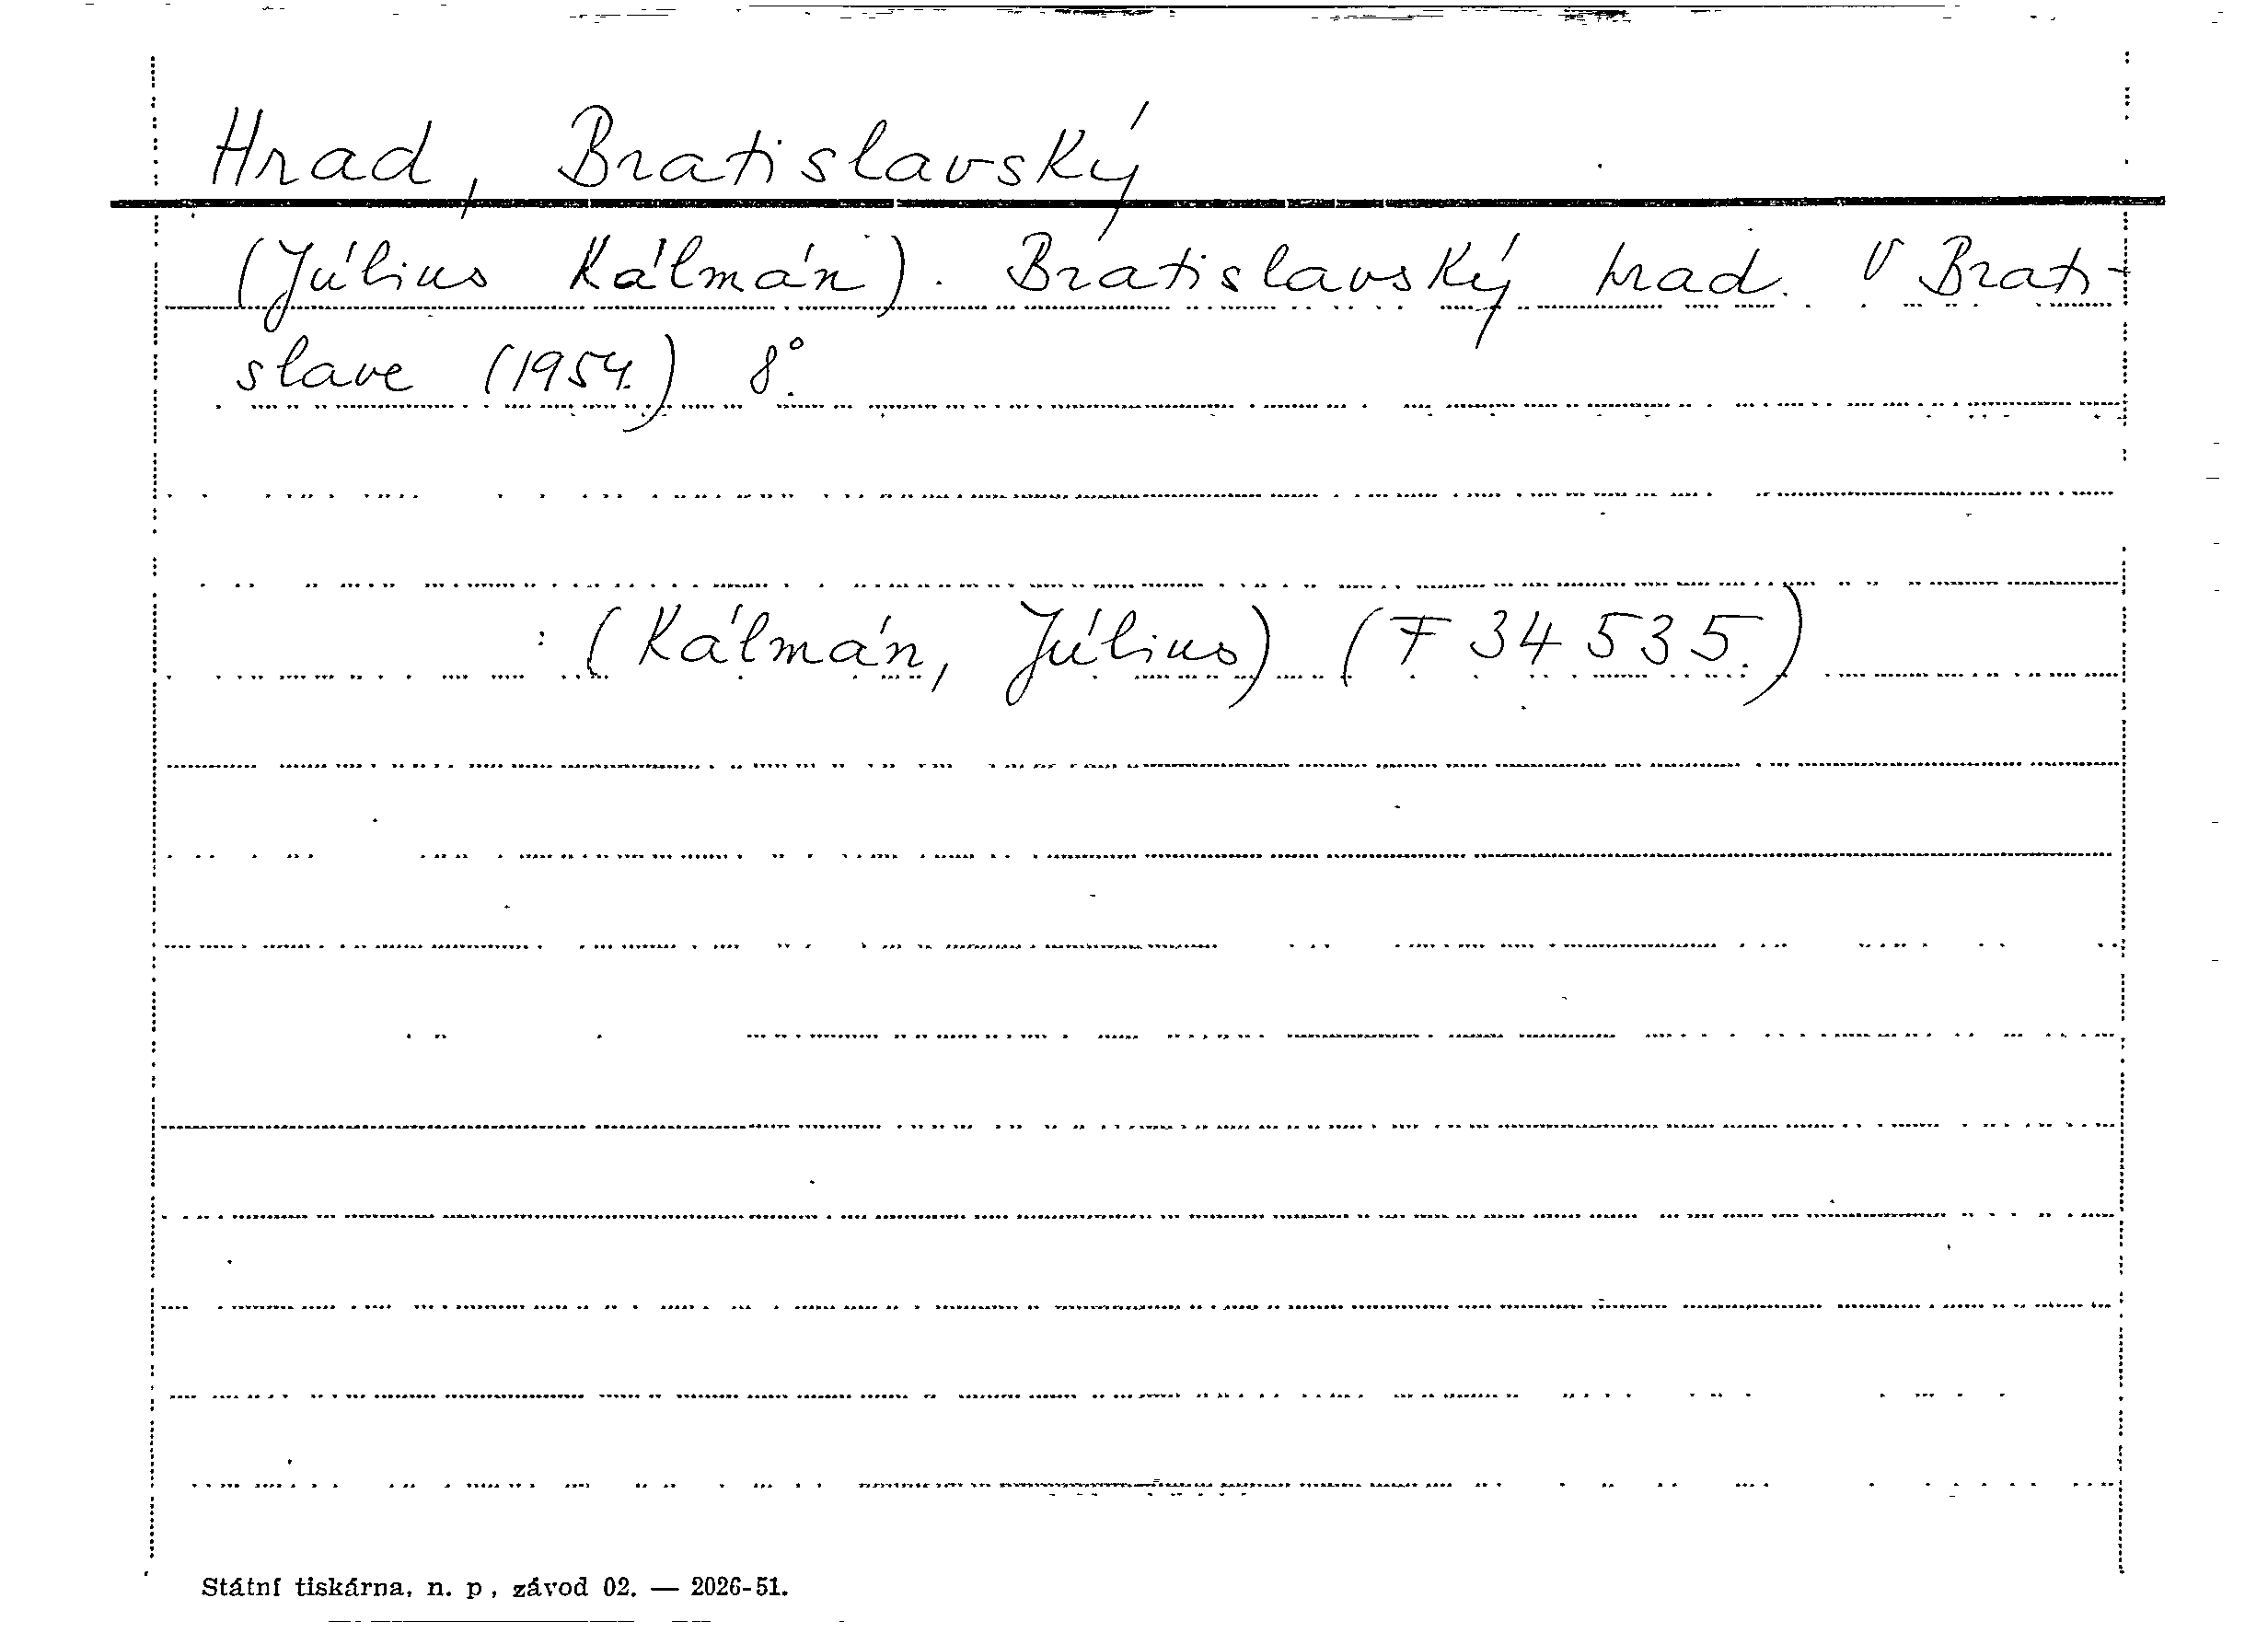 Hrad, Bratislavský
(Július Kálmán). Bratislavský hrad. V Brati-
slave (1954.) 8°.
: (Kálmán, Július) (F 34 535.)
Státní tiskárna, n. p., závod 02. — 2026-51.